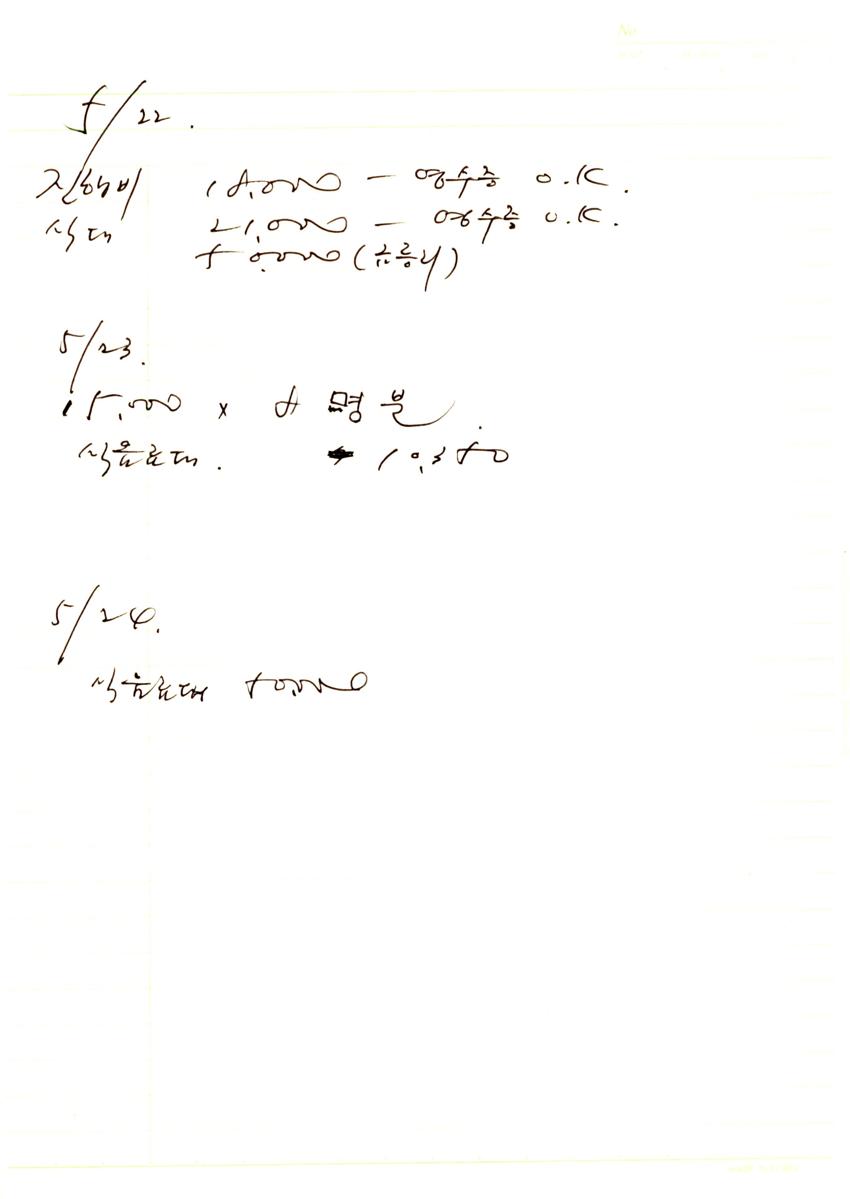 No
5/22.
진행비 18,000 - 영수증 O.K.
식대 21,000 - 영수증 O.K.
50,000 (
5/23.
15,000 x 8 명분.
식음료대. 10,350
5/24.
식음료대 50,000